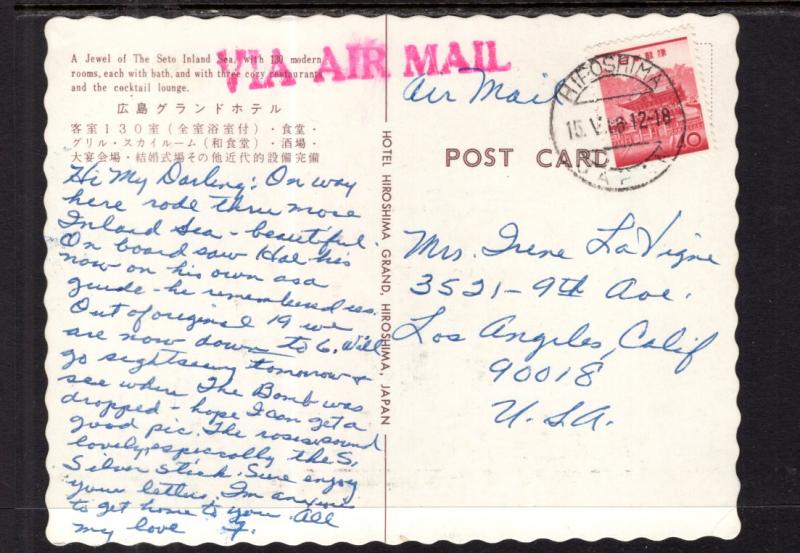 A Jewel of The Seto Inland Sea, with 130 modern
rooms, each with bath, and with three cozy restaurants
and the cocktail lounge.
広島グランドホテル
客室130室(全室浴室付)・食堂・
グリル・スカイルーム(和食堂)・酒場・
大宴会場・結婚式場その他近代的設備完備
VIA AIR MAIL
Air Mail
HIROSHIMA
15.V. 12-18
JAPAN
40
POST CARD
HOTEL HIROSHIMA GRAND, HIROSHIMA, JAPAN
Hi My Darling: On way
here rode thru more
Inland Sea - beautiful.
On board saw Hal he's
now on his own as a
guide - he remembered us.
Out of original 19 we
are now down to 6. Will
go sightseeing tomorrow &
see where The Bomb was
dropped - hope I can get a
good pic. The roses sound
lovely, especially the S,
Silver Stick. Sure enjoy
your letters. I'm anxious
to get home to you. All
my love
Mrs. Irene La Vigne
3521-9th Ave.
Los Angeles, Calif
90018
U.S.A.